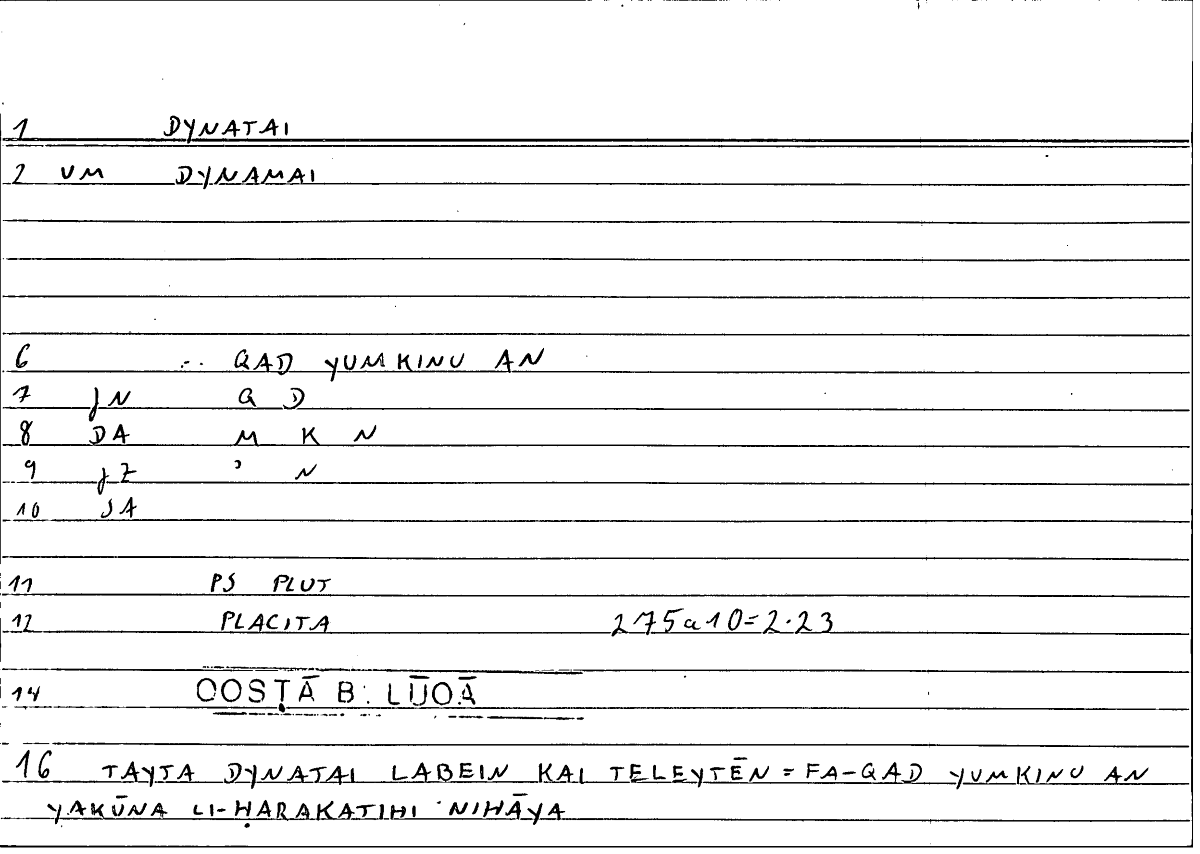 1 DYNATAI
2 VM DYNAMAI
6 .-. QAD YUMKINU AN
7 JN Q D
8 DA M K N
9 JZ ʾ N
10 SA
11 PS PLUT
12 PLACITA 275a10=2.23
14 QOSṬĀ B. LŪQĀ
16 TAYTA DYNATAI LABEIN KAI TELEYTĒN = FA-QAD YUMKINU AN
YAKŪNA LI-ḤARAKATIHI NIHĀYA